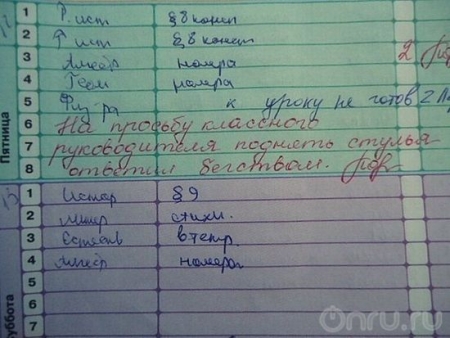 1 Р. ист § 8 консп
2 Р ист § 8 консп
3 Алгебр номера 2
4 Геом номера
5 Физ-ра к уроку не готов 2
Пятница
6 На просьбу классного
7 руководителя поднять стулья
8 ответил бегством.
1 Истор § 9
2 Литер стихи.
3 Естеств в тетр.
4 Алгебр номера
5
6
7
суббота
Onru.ru